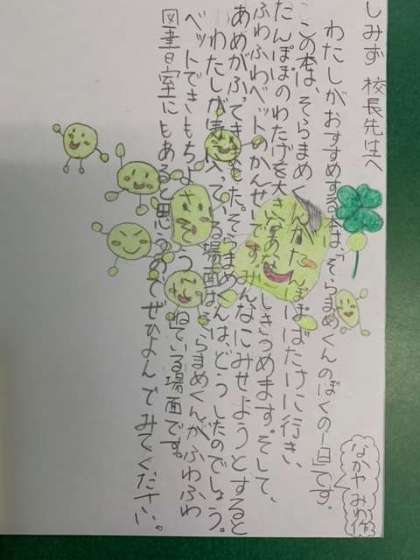 しみず 校長先生へ
わたしがおすすめする本は、「そらまめくんのぼくの一日」です。
この本は、そらまめくんがたんぽぽばたけに行き、
たんぽぽのわたげを大きな
しきつめます。そして、
ふわふわベットのかんせいです。みんなにみせようとすると
あめがふってきました。そらまめくんはどうしたのでしょう。
わたしが気に入っている場面は、そらまめくんがふわふわ
ベットできもちよさそうにねている場面です。
図書室にもあると思うのでぜひよんでみてください。
なかや みわ作